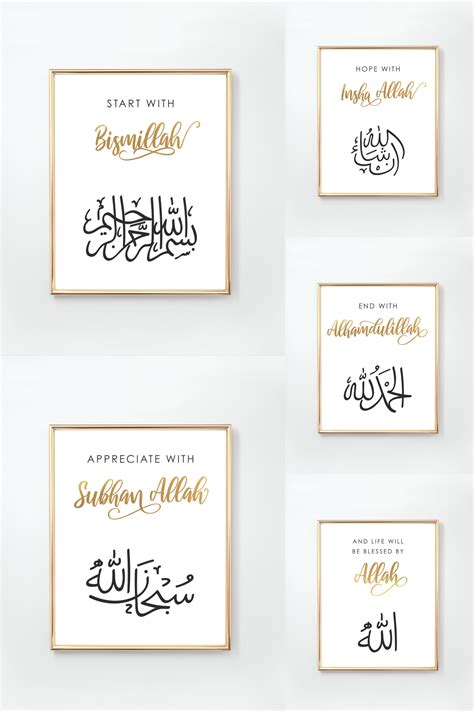 START WITH
Bismillah
بسم الله الرحمن الرحيم
HOPE WITH
Insha Allah
إن شاء الله
END WITH
Alhamdulillah
الحمد لله
APPRECIATE WITH
Subhan Allah
سُبْحَانَ الله
AND LIFE WILL
BE BLESSED BY
Allah
الله